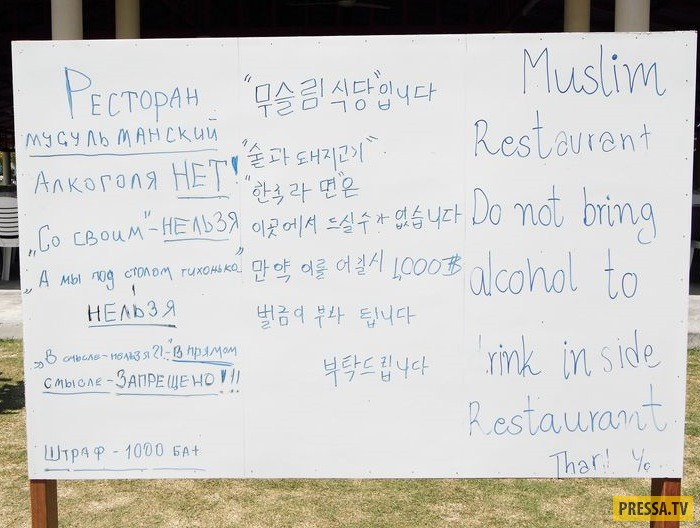 Ресторан
мусульманский
Алкоголя НЕТ!
„Со своим"-НЕЛЬЗЯ
„А мы под столом тихонько"
НЕЛЬЗЯ
„В смысле-нельзя?!"-В прямом
смысле-ЗАПРЕЩЕНО!!!
ШТРАФ-1000 БАТ
"무슬림 식당"입니다
"술과 돼지고기"
"한국라면"은
이곳에서 드실수가 없습니다
만약 이를 어길시 1,000฿
벌금이 부과 됩니다
부탁드립니다
Muslim
Restaurant
Do not bring
alcohol to
rink in side
Restaurant
PRESSA.TV